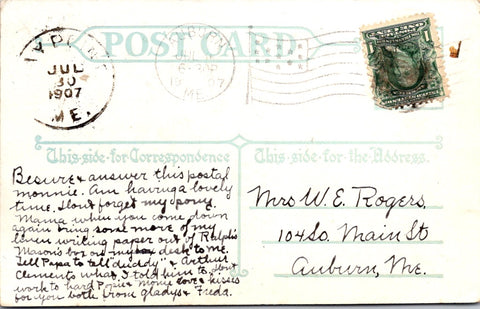 POST CARD
JUL
30
1907
ME.
AUBURN
JUL
1907
ME.
This side for Correspondence
This side for the Address.
Besure & answer this postal
monnie. Am havinga lovely
time. Dont forget my pony.
Mama when you come down
again bring some more of my
linen writing paper out of Ralph
Mason's box or my desk to me.
Tell Papa to tell & Arthur
Clements what I told him to. Dont
work to hard Popsie & Monie love & kisses
for you both from Gladys & Freda.
Mrs W. E. Rogers.
104 So. Main St
Auburn, Me.